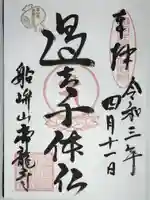 奉拝
令和三年
四月十一日
過去千体仏
船峅山帝龍寺